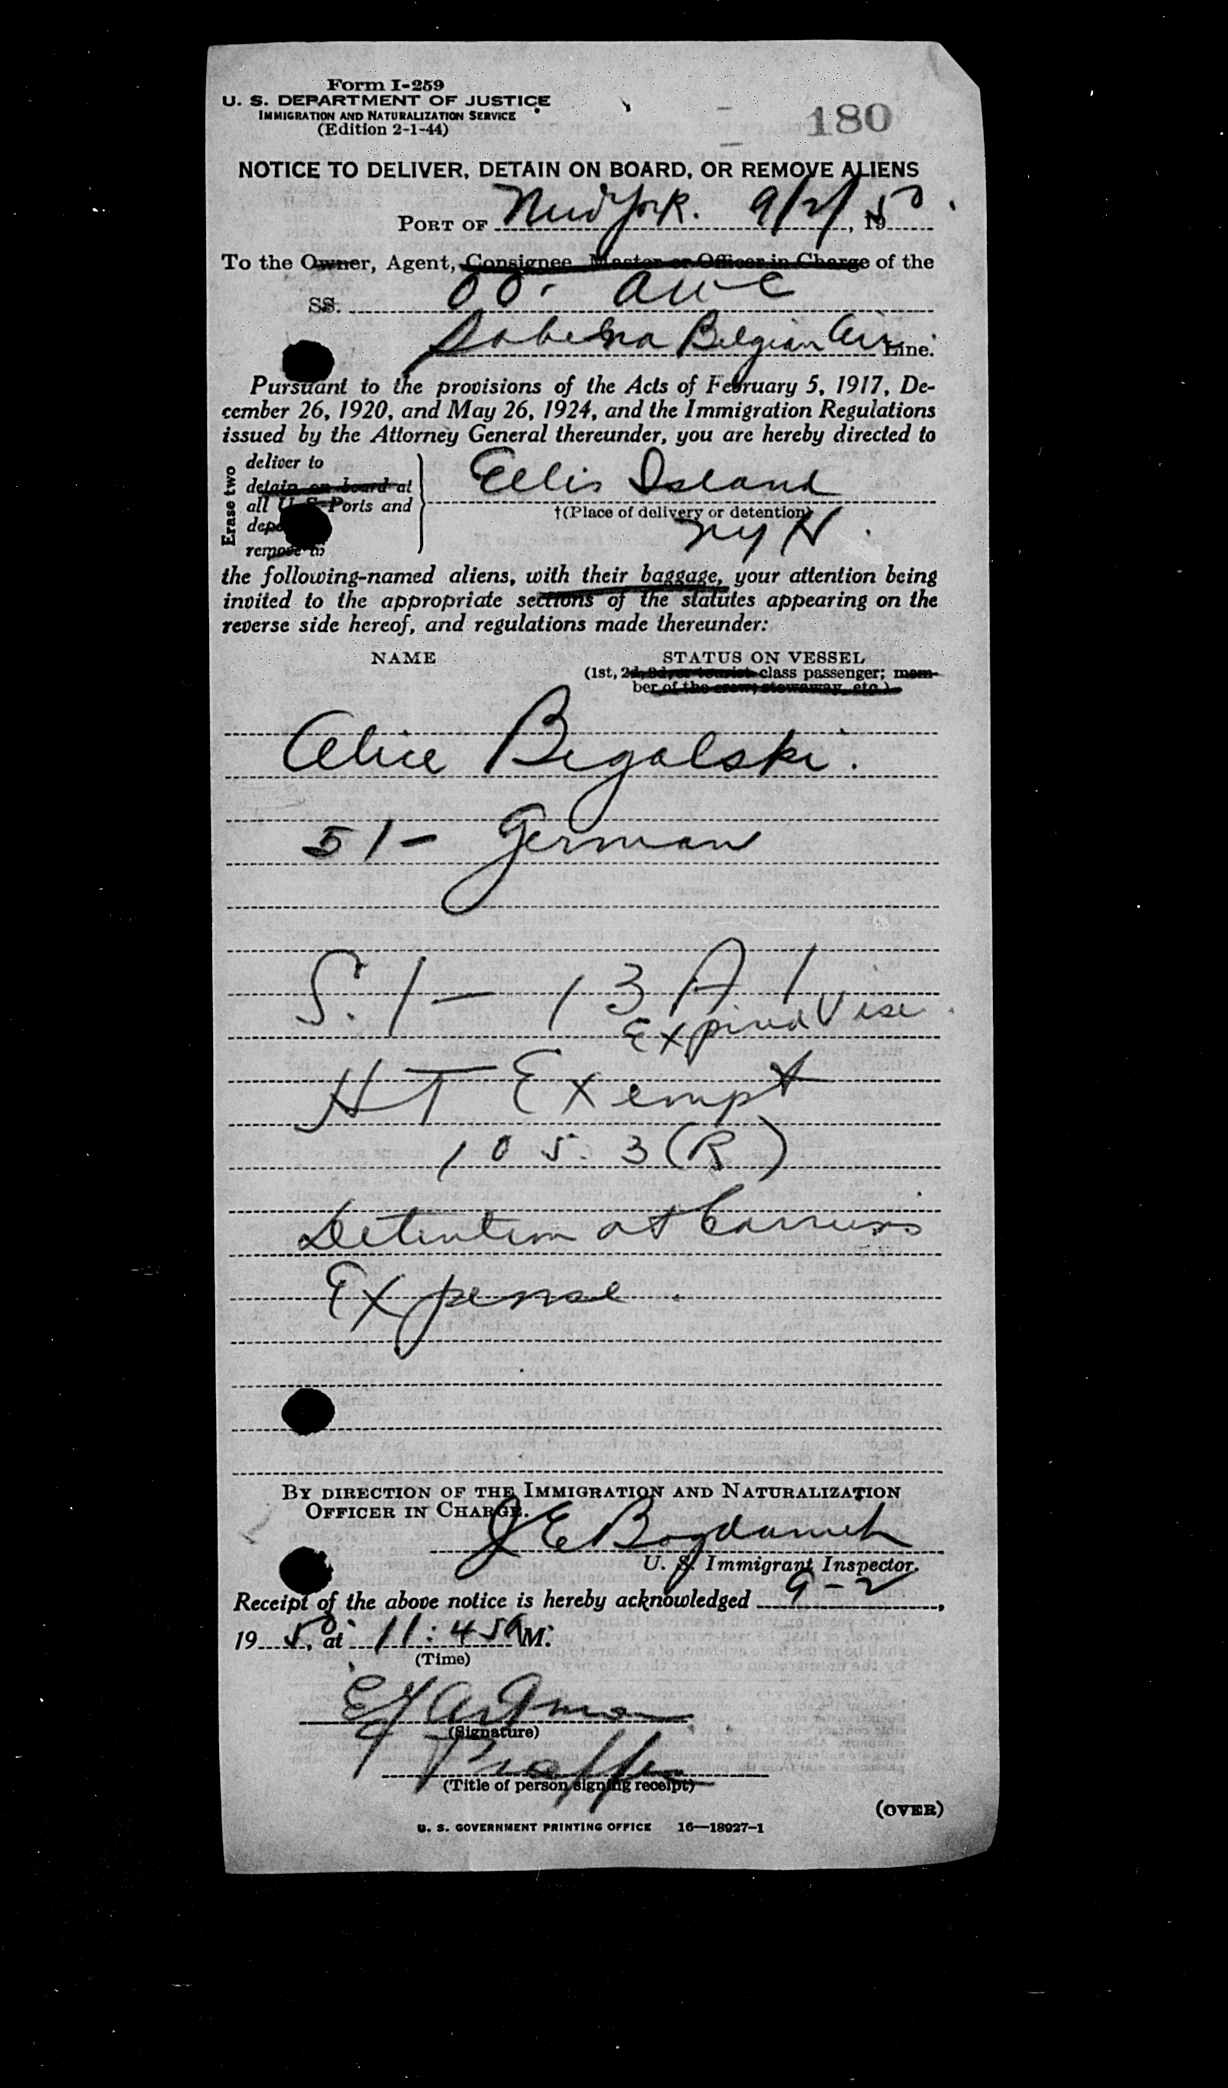 Form I-259
U. S. DEPARTMENT OF JUSTICE
IMMIGRATION AND NATURALIZATION SERVICE
(Edition 2-1-44)
180
NOTICE TO DELIVER, DETAIN ON BOARD, OR REMOVE ALIENS
PORT OF New York. 9/2/, 1950.
To the Owner, Agent, Consignee, Master or Officer in Charge of the
SS. OO- AWC
Sabena Belgian Air Line.
Pursuant to the provisions of the Acts of February 5, 1917, De-
cember 26, 1920, and May 26, 1924, and the Immigration Regulations
issued by the Attorney General thereunder, you are hereby directed to
Erase two
deliver to
detain on board at
all U. S. Ports and
remove to
Ellis Island
†(Place of delivery or detention)
NYH.
the following-named aliens, with their baggage, your attention being
invited to the appropriate sections of the statutes appearing on the
reverse side hereof, and regulations made thereunder:
NAME STATUS ON VESSEL
(1st, 2d, 3d, or tourist class passenger; mem-
ber of the crew; stowaway, etc.)
Alice Bigalski.
51- German
S.I- 13 A 1
Expired Vise.
HT Exempt
105.3(R)
Detention at Carriers
Expense.
BY DIRECTION OF THE IMMIGRATION AND NATURALIZATION
OFFICER IN CHARGE.
U. S. Immigrant Inspector.
Receipt of the above notice is hereby acknowledged 9-2,
1950, at 11:45AM.
(Time)
(Signature)
(Title of person signing receipt)
(OVER)
U. S. GOVERNMENT PRINTING OFFICE 16—18927-1